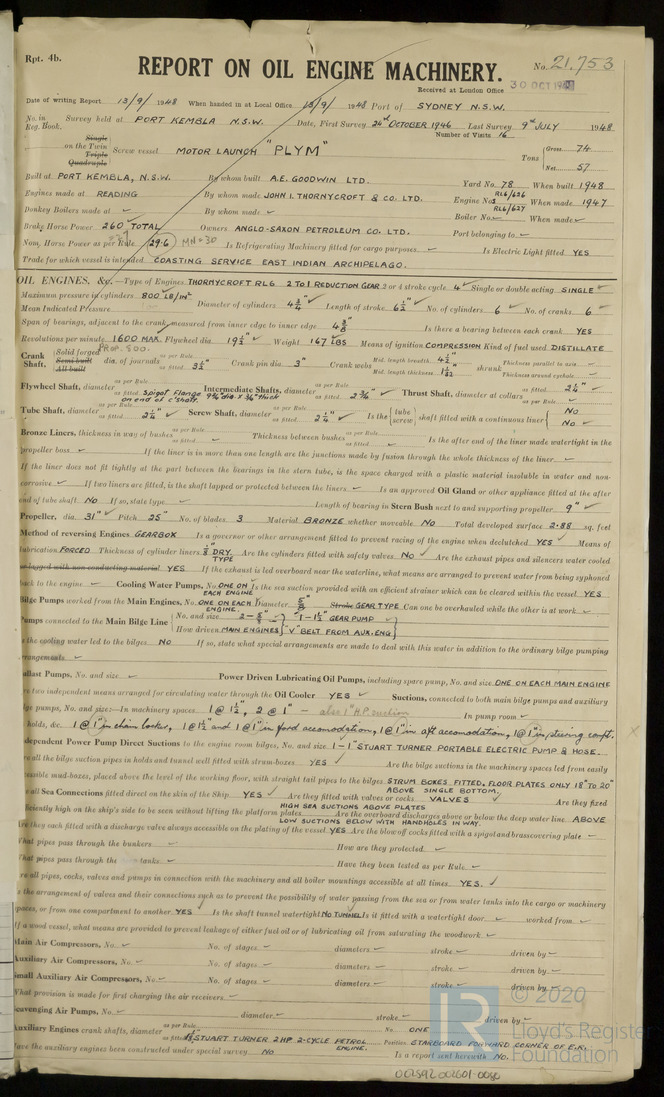 Rpt. 4b.
REPORT ON OIL ENGINE MACHINERY.
No. 21.753
Received at London Office 30 OCT 1948
Date of writing Report 13/9/ 1948 When handed in at Local Office 13/9/ 1948 Port of SYDNEY N.S.W.
No. in Reg. Book. Survey held at PORT KEMBLA N.S.W. Date, First Survey 24th OCTOBER 1946 Last Survey 9th JULY 1948
Number of Visits 16
Single on the Twin Triple Quadruple Screw vessel MOTOR LAUNCH "PLYM" Tons Gross 74 Net 57
Built at PORT KEMBLA, N.S.W. By whom built A.E. GOODWIN LTD. Yard No. 78 When built 1948
Engines made at READING By whom made JOHN I. THORNYCROFT & CO. LTD. Engine Nos RL6/626 RL6/627 When made 1947
Donkey Boilers made at ✓ By whom made ✓ Boiler No. ✓ When made ✓
Brake Horse Power 260 TOTAL Owners ANGLO-SAXON PETROLEUM CO. LTD. Port belonging to ✓
Nom. Horse Power as per Rule 29.6 MN=30 Is Refrigerating Machinery fitted for cargo purposes ✓ Is Electric Light fitted YES
Trade for which vessel is intended COASTING SERVICE EAST INDIAN ARCHIPELAGO.
OIL ENGINES, &c.—Type of Engines THORNYCROFT RL6 2 TO 1 REDUCTION GEAR 2 or 4 stroke cycle 4 Single or double acting SINGLE
Maximum pressure in cylinders 800 LB/IN² Diameter of cylinders 4¾" Length of stroke 6½" No. of cylinders 6 No. of cranks 6
Mean Indicated Pressure
Span of bearings, adjacent to the crank, measured from inner edge to inner edge Is there a bearing between each crank YES
Revolutions per minute 1600 MAX. PROP. 800. Flywheel dia. 19½" Weight 167 LBS Means of ignition COMPRESSION Kind of fuel used DISTILLATE
Crank Shaft, Solid forged Semi built All built dia. of journals as per Rule as fitted 3½" Crank pin dia. 3" Crank webs Mid. length breadth 4½" Mid. length thickness shrunk Thickness parallel to axis Thickness around eyehole
Flywheel Shaft, diameter as per Rule as fitted Spigot Flange on end of c'shaft Intermediate Shafts, diameter as per Rule as fitted Thrust Shaft, diameter at collars as per Rule as fitted 2¼"
Tube Shaft, diameter as per Rule as fitted 2¼" Screw Shaft, diameter as per Rule as fitted 2¼" Is the tube screw shaft fitted with a continuous liner No No
Bronze Liners, thickness in way of bushes as per Rule as fitted Thickness between bushes as per Rule as fitted Is the after end of the liner made watertight in the
propeller boss ✓ If the liner is in more than one length are the junctions made by fusion through the whole thickness of the liner ✓
If the liner does not fit tightly at the part between the bearings in the stern tube, is the space charged with a plastic material insoluble in water and non-
corrosive ✓ If two liners are fitted, is the shaft lapped or protected between the liners ✓ Is an approved Oil Gland or other appliance fitted at the after
end of tube shaft No If so, state type ✓ Length of bearing in Stern Bush next to and supporting propeller 9"
Propeller, dia. 31" Pitch 25" No. of blades 3 Material BRONZE whether moveable NO Total developed surface 2.88 sq. feet
Method of reversing Engines GEARBOX Is a governor or other arrangement fitted to prevent racing of the engine when declutched YES Means of
lubrication FORCED Thickness of cylinder liners DRY TYPE Are the cylinders fitted with safety valves NO Are the exhaust pipes and silencers water cooled
or lagged with non-conducting material YES If the exhaust is led overboard near the waterline, what means are arranged to prevent water from being syphoned
back to the engine ✓ Cooling Water Pumps, No. ONE ON EACH ENGINE Is the sea suction provided with an efficient strainer which can be cleared within the vessel YES
Bilge Pumps worked from the Main Engines, No. ONE ON EACH ENGINE. Diameter Stroke GEAR TYPE Can one be overhauled while the other is at work ✓
Pumps connected to the Main Bilge Line No. and size 1-1½" GEAR PUMP How driven MAIN ENGINES "V" BELT FROM AUX. ENG
Is the cooling water led to the bilges NO If so, state what special arrangements are made to deal with this water in addition to the ordinary bilge pumping
arrangements ✓
Ballast Pumps, No. and size ✓ Power Driven Lubricating Oil Pumps, including spare pump, No. and size ONE ON EACH MAIN ENGINE
Are two independent means arranged for circulating water through the Oil Cooler YES Suctions, connected to both main bilge pumps and auxiliary
bilge pumps, No. and size:—In machinery spaces 1 @ 1½", 2 @ 1" – also 1" H.P. suction In pump room ✓
In holds, &c. 1 @ 1" in chain locker, 1 @ 1½" and 1 @ 1" in ford accomodation, 1 @ 1" in aft accomodation, 1 @ 1" in steering compt.
Independent Power Pump Direct Suctions to the engine room bilges, No. and size 1 - 1" STUART TURNER PORTABLE ELECTRIC PUMP & HOSE.
Are all the bilge suction pipes in holds and tunnel well fitted with strum-boxes YES Are the bilge suctions in the machinery spaces led from easily
accessible mud-boxes, placed above the level of the working floor, with straight tail pipes to the bilges STRUM BOXES FITTED, FLOOR PLATES ONLY 18" TO 20" ABOVE SINGLE BOTTOM.
Are all Sea Connections fitted direct on the skin of the Ship YES Are they fitted with valves or cocks VALVES Are they fixed
sufficiently high on the ship's side to be seen without lifting the platform plates HIGH SEA SUCTIONS ABOVE PLATES LOW SUCTIONS BELOW WITH HANDHOLES IN WAY. Are the overboard discharges above or below the deep water line ABOVE
Are they each fitted with a discharge valve always accessible on the plating of the vessel YES Are the blow off cocks fitted with a spigot and brass covering plate ✓
What pipes pass through the bunkers ✓ How are they protected ✓
What pipes pass through the tanks ✓ Have they been tested as per Rule ✓
Are all pipes, cocks, valves and pumps in connection with the machinery and all boiler mountings accessible at all times YES.
Is the arrangement of valves and their connections such as to prevent the possibility of water passing from the sea or from water tanks into the cargo or machinery
spaces, or from one compartment to another YES Is the shaft tunnel watertight NO TUNNEL Is it fitted with a watertight door ✓ worked from ✓
If a wood vessel, what means are provided to prevent leakage of either fuel oil or of lubricating oil from saturating the woodwork ✓
Main Air Compressors, No. ✓ No. of stages ✓ diameters ✓ stroke ✓ driven by ✓
Auxiliary Air Compressors, No. ✓ No. of stages ✓ diameters ✓ stroke ✓ driven by ✓
Small Auxiliary Air Compressors, No. ✓ No. of stages ✓ diameters ✓ stroke ✓ driven by ✓
What provision is made for first charging the air receivers ✓
Scavenging Air Pumps, No. ✓ diameter ✓ stroke ✓ driven by ✓
Auxiliary Engines crank shafts, diameter as per Rule as fitted STUART TURNER 2HP 2-CYCLE PETROL ENGINE. No. ONE Position STARBOARD FORWARD CORNER OF E.R.
Have the auxiliary engines been constructed under special survey NO Is a report sent herewith NO.
© 2020
Lloyd's Register
Foundation
002592-002601-0086